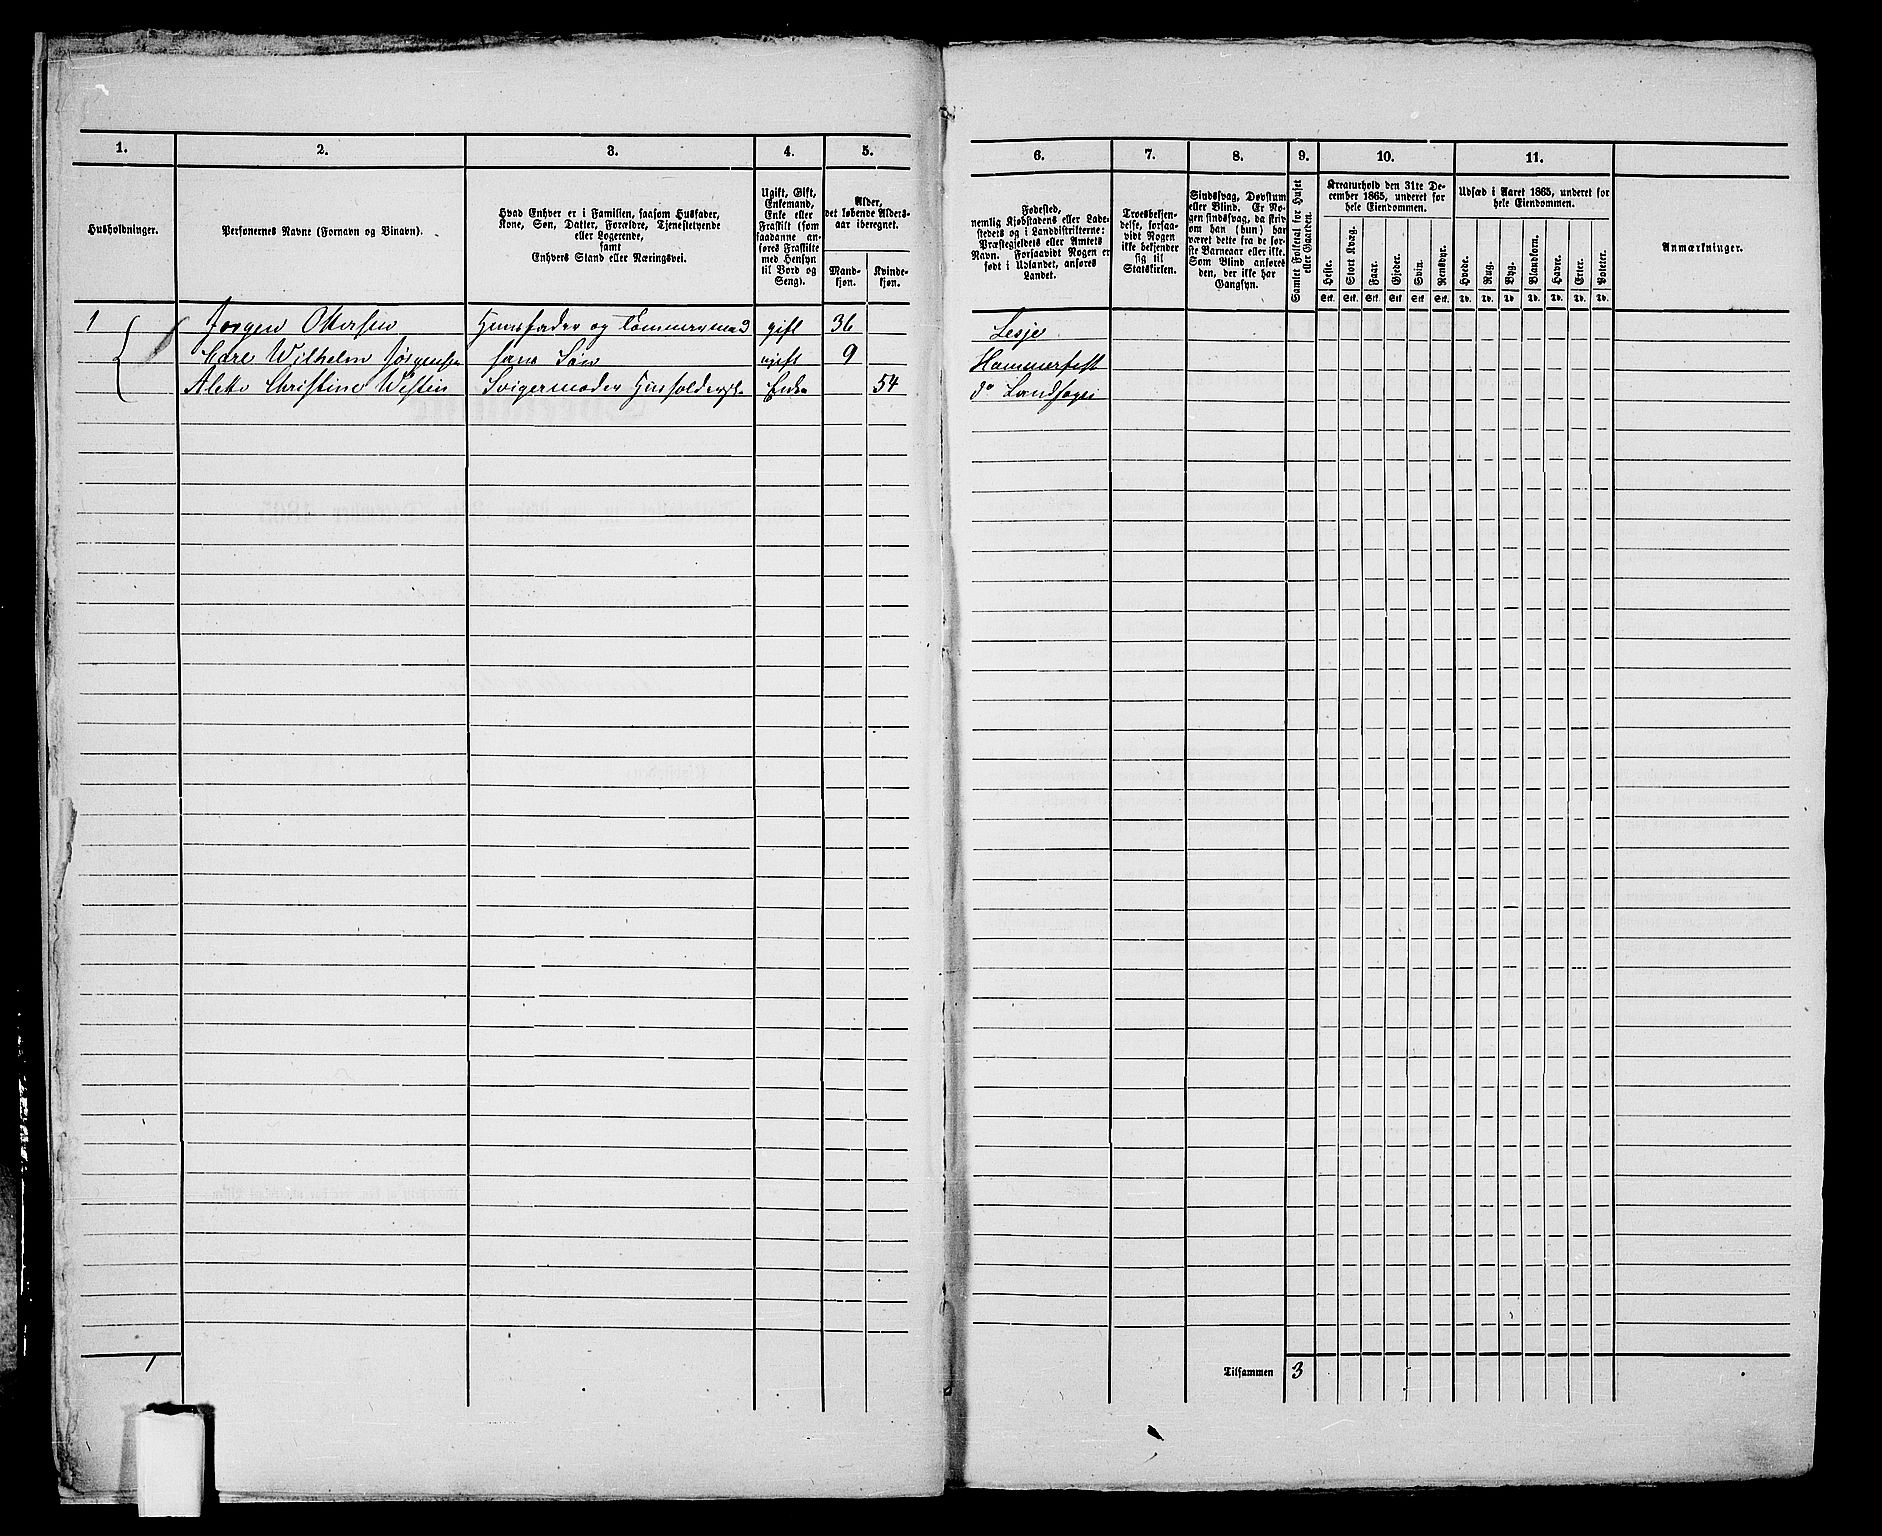 1. 2. 3. 4. 5.
Husholdninger.
Personernes Navne (Fornavn og Binavn).
Hvad Enhver er i Familien, saasom Husfader,
Kone, Søn, Datter, Forældre, Tjenestetyende
eller Logerende,
samt
Enhvers Stand eller Næringsvei.
Ugift, Gift,
Enkemand,
Enke eller
Fraskilt (som
saadanne an-
føres Fraskilte
med Hensyn
til Bord og
Seng).
Alder,
det løbende Alders-
aar iberegnet.
Mand-
kjøn.
Kvinde-
kjøn.
1 Jørgen Ottersen Huusfader og Tømmermand gift 36
Carl Wilhelm Jørgensen hans Søn ugift 9
Aletto Christine Westin Svigermoder Enke 54
1
6. 7. 8. 9. 10. 11.
Fødested,
nemlig Kjøbstadens eller Lade-
stedets og i Landdistrikterne:
Præstegjeldets eller Amtets
Navn. Forsaavidt Nogen er
født i Udlandet, anføres
Landet.
Troesbekjen-
delse, forsaa-
vidt Nogen
ikke bekjender
sig til
Statskirken.
Sindssvag, Døvstum
eller Blind. Er No-
gen sindssvag, da skriv
om han (hun) har
været dette fra de før-
ste Barneaar eller ikke.
Som Blind anføres
den, der ikke har
Gangsyn.
Samlet Folketal for Huset
eller Gaarden.
Kreaturhold den 31te De-
cember 1865, underet for
hele Eiendommen.
Heste. Stort Kvæg. Faar. Gjeder. Svin. Rensdyr.
Stk. Stk. Stk. Stk. Stk. Stk.
Udsæd i Aaret 1865, underet for
hele Eiendommen.
Hvede. Rug. Byg. Blandkorn. Havre. Erter. Poteter.
Td. Td. Td. Td. Td. Td. Td.
Anmærkninger.
Lesje
Hammerfest
do Landsogn
Tilsammen 3